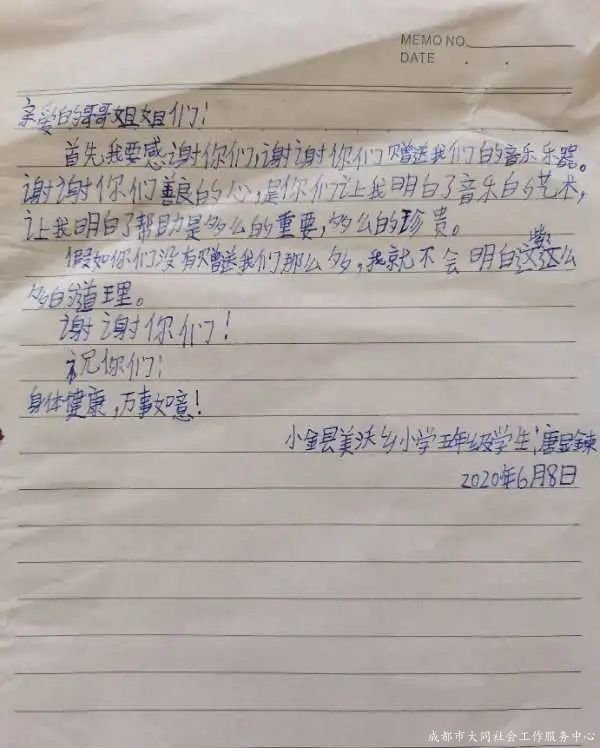 MEMO NO.
DATE . .
亲爱的哥哥姐姐们！
首先我要感谢你们，谢谢你们赠送我们的音乐乐器。
谢谢你们善良的心，是你们让我明白了音乐的艺术，
让我明白了帮助是多么的重要，多么的珍贵。
假如你们没有赠送我们那么多，我就不会明白这么
多的道理。
谢谢你们！
祝你们：
身体健康，万事如意！
小金县美沃乡小学五年级学生：唐
2020年6月8日
成都市大同社会工作服务中心